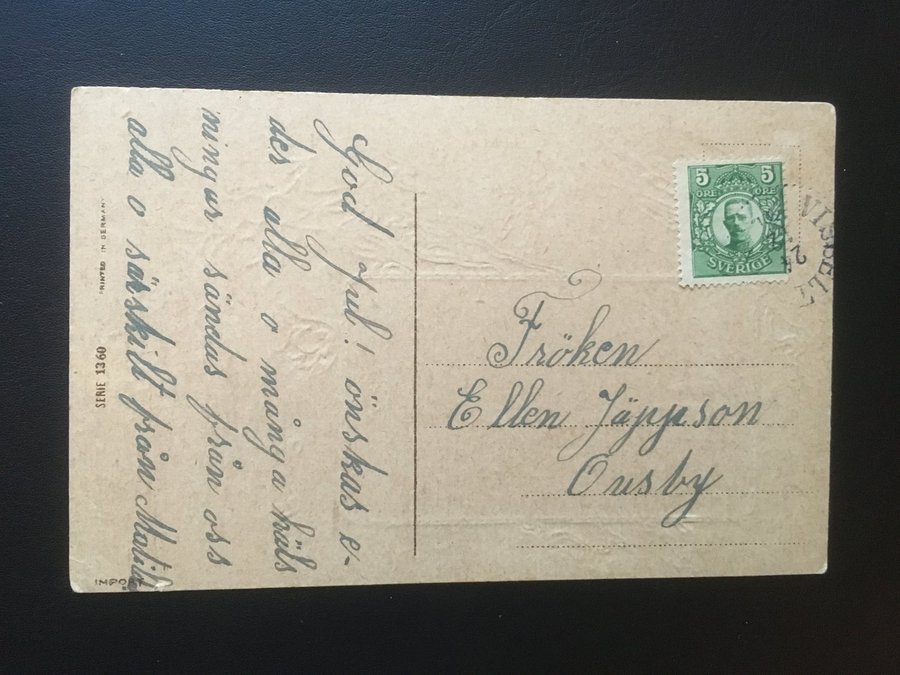 God Jul! önskas e-
der alla o många häls
ningar sändas från oss
alla o särskilt från Matild
PRINTED IN GERMANY
SERIE 1360
IMPORT
5 5
ÖRE ÖRE
SVERIGE
Fröken
Ellen Jäppson
Ousby